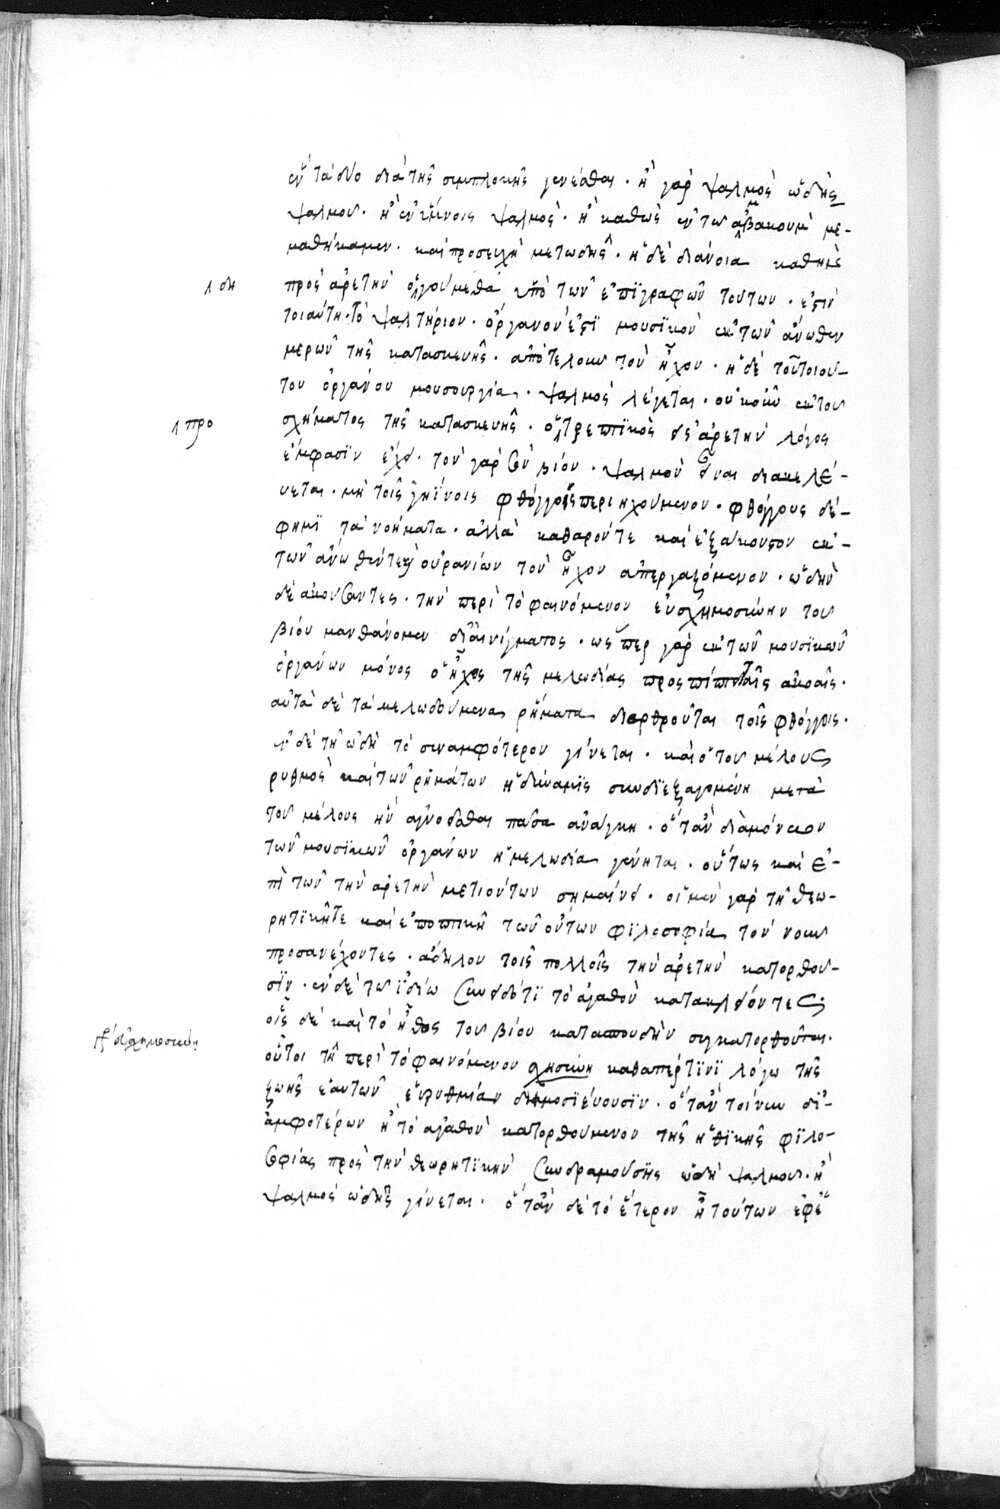 ἓν τὰ δύο διὰ τῆς συμπλοκῆς γενέσθαι · ἢ γὰρ ψαλμὸς ὠδῆς
ψαλμου · ἢ ἐν ὕμνοις ψαλμὸς · ἢ καθὼς ἐν τω ἀμβακοὺμ με-
μαθήκαμεν · καὶ προσευχὴ μετωδῆς · ἡ δὲ διάνοια καθ ἣν
λ δη
πρὸς ἀρετὴν ὁδηγούμεθα ὑπὸ τῶν ἐπιγραφῶν τούτων · ἐστὶν
τοιαύτη · Τὸ ψαλτήριον · ὄργανον ἐστὶ μουσικὸν ἐκ τῶν ἄνωθεν
μερῶν τῆς κατασκευῆς · ἀποτελουν τὸν ἦχον · ἡ δὲ τοῦ τοιού-
του ὀργάνου μουσουργία · ψαλμὸς λέγεται · οὐκοῦν ἐκ του
λ προ
σχήματος τῆς κατασκευῆς · ὁ τρεπτικὸς εἰς ἀρετὴν λόγος
ἔμφασιν ἔχει · τὸν γὰρ σὸν βίον · ψαλμὸν εἶναι διακελε-
ύεται · μὴ τοῖς γηΐνοις φθόγγοις περιηχούμενον · φθόγγους δέ-
φημὶ τὰ νοήματα · ἀλλὰ καθαρόν τε καὶ ἐξάκουστον ἐκ-
τῶν ἄνωθέν τε καὶ οὐρανίων τὸν ἦχον ἀπεργαζόμενον · ὠδὴν
δὲ ἀκούσαντες · τὴν περὶ τὸ φαινόμενον εὐσχημοσύνην του
βίου μανθάνομεν δι αἰνίγματος · ὥς περ γὰρ ἐκ τῶν μουσικῶν
ὀργάνων μόνος ὁ ἦχος τῆς μελωδίας προςπίπτει ταῖς ἀκοαῖς ·
αὐτὰ δὲ τὰ μελωδούμενα ῥήματα διαρθροῦται τοῖς φθόγγοις ·
ἐν δὲ τῇ ὠδῇ τὸ συναμφότερον γίνεται · καὶ ὁ του μέλους
ρυθμὸς καὶ τῶν ῥημάτων ἡ δύναμις συνδιεξαγομένη μετὰ
του μέλους ἣν ἀγνοεῖσθαι πᾶσα ἀνάγκη · ὅταν διὰ μόνων
τῶν μουσικῶν ὀργάνων ἡ μελωδία γένηται · οὕτως καὶ ἐ-
πὶ τῶν τὴν ἀρετὴν μετιόντων σημαίνει · οἱ μὲν γὰρ τῇ θεω-
ρητικῇ τε καὶ ἐποπτικῇ τῶν ὄντων φιλοσοφία τὸν νουν
προσανέχοντες · ἄδηλον τοῖς πολλοῖς τὴν ἀρετὴν κατορθου-
σϊν · ἐν δὲ τω ἰδίω συνειδότι τὸ ἀγαθὸν κατακλείοντες
οἷς δὲ καὶ τὸ ἦθος του βίου κατασπουδὴν συγκατορθοῦται ·
οὗτοι τῇ περὶ τὸ φαινόμενον χησύνη καθάπερ τινὶ λόγω τῆς
ζωῆς ἑαυτῶν εὐρυθμίαν δημοσιεύουσιν · ὅταν τοίνυν δι-
ἀμφοτέρων ἢ τὸ ἀγαθὸν κατορθούμενον τῆς ἠθικῆς φιλο-
σοφίας πρὸς τὴν θεωρητικὴν συνδραμούσης ὠδὴ ψαλμου · ἢ
ψαλμὸς ὠδῆς γίνεται · ὅταν δὲ τὸ ἕτερον ἢ τούτων ἐφ ἑ